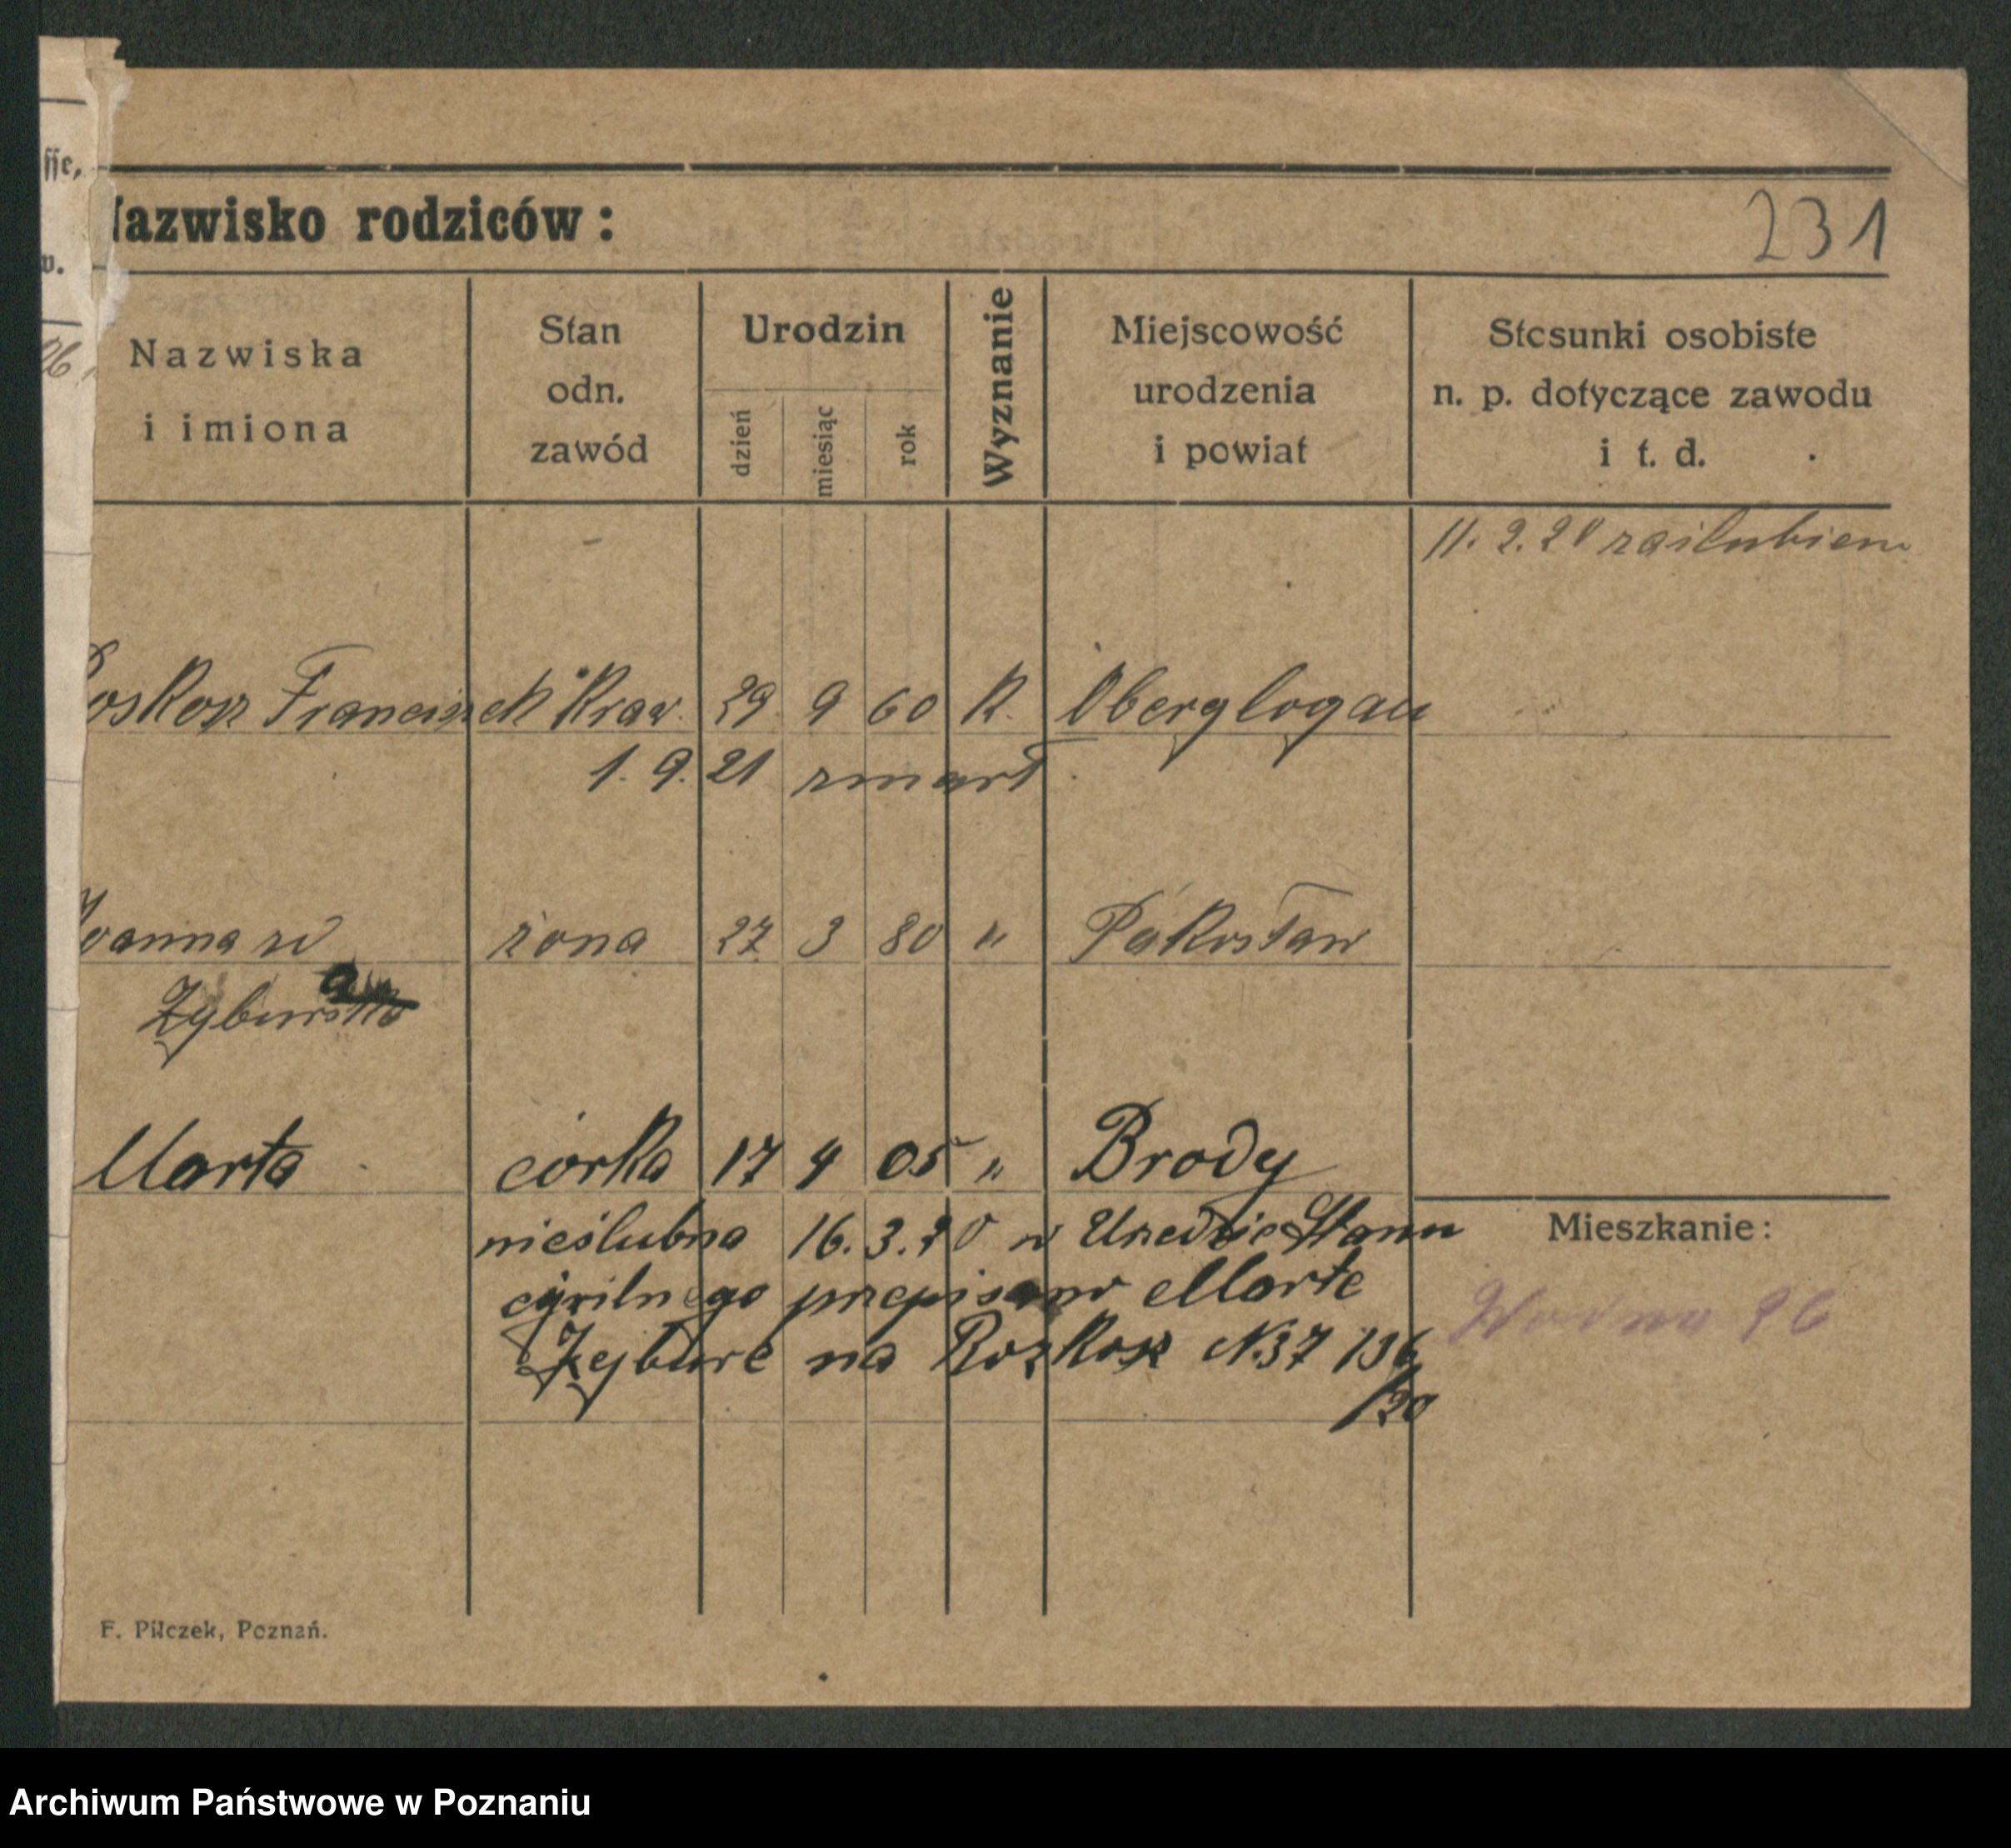 231
azwisko rodziców:
Nazwiska i imiona
Stan odn. zawód
Urodzin
dzień
miesiąc
rok
Wyznanie
Miejscowość urodzenia i powiat
Stosunki osobiste n. p. dotyczące zawodu i t. d.
11. 2. 20
oskosz Franciszek Kraw. 29 9 60 K. Oberglogau
1. 9. 21 zmarł.
Joanna zd żona 27 3 80 " Pakosław
Marta córka 17 4 05 " Brody
nieślubna 16. 3. 20 w Urzędzie Stanu
cywilnego przepisano Martę
na Rozkosz N. 37 136
/20
Mieszkanie:
F. Pilczek, Poznań.
Archiwum Państwowe w Poznaniu